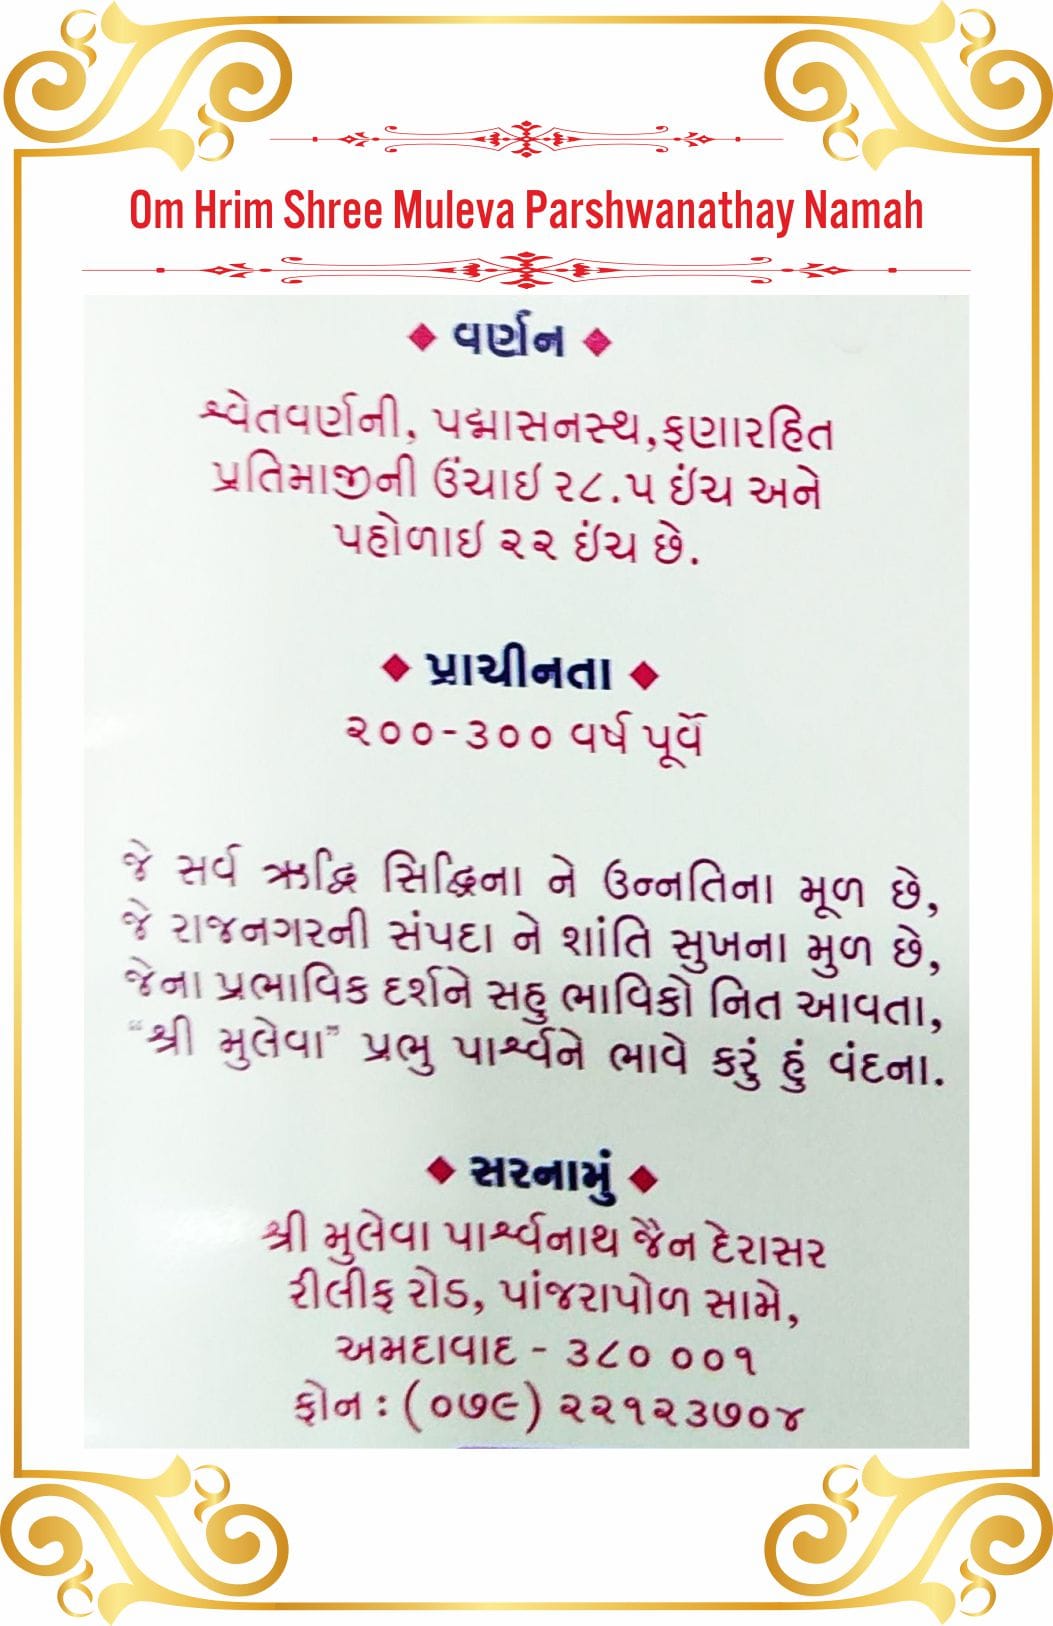 Om Hrim Shree Muleva Parshwanathay Namah
વર્ણન
શ્વેતવર્ણની, પદ્માસનસ્થ,ફણારહિત
પ્રતિમાજીની ઉંચાઇ ૨૮.૫ ઇંચ અને
પહોળાઇ ૨૨ ઇંચ છે.
પ્રાચીનતા
૨૦૦-૩૦૦ વર્ષ પૂર્વે
જે સર્વ ઋદ્ધિ સિદ્ધિના ને ઉન્નતિના મૂળ છે,
જે રાજનગરની સંપદા ને શાંતિ સુખના મુળ છે,
જેના પ્રભાવિક દર્શને સહુ ભાવિકો નિત આવતા,
“શ્રી મુલેવા” પ્રભુ પાર્શ્વને ભાવે કરું હું વંદના.
સરનામું
શ્રી મુલેવા પાર્શ્વનાથ જૈન દેરાસર
રીલીફ રોડ, પાંજરાપોળ સામે,
અમદાવાદ - ૩૮૦ ૦૦૧
ફોન : (૦૭૯) ૨૨૧૨૩૭૦૪